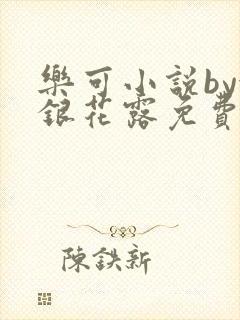 樂可小説by
銀花露免費
陳鉄新